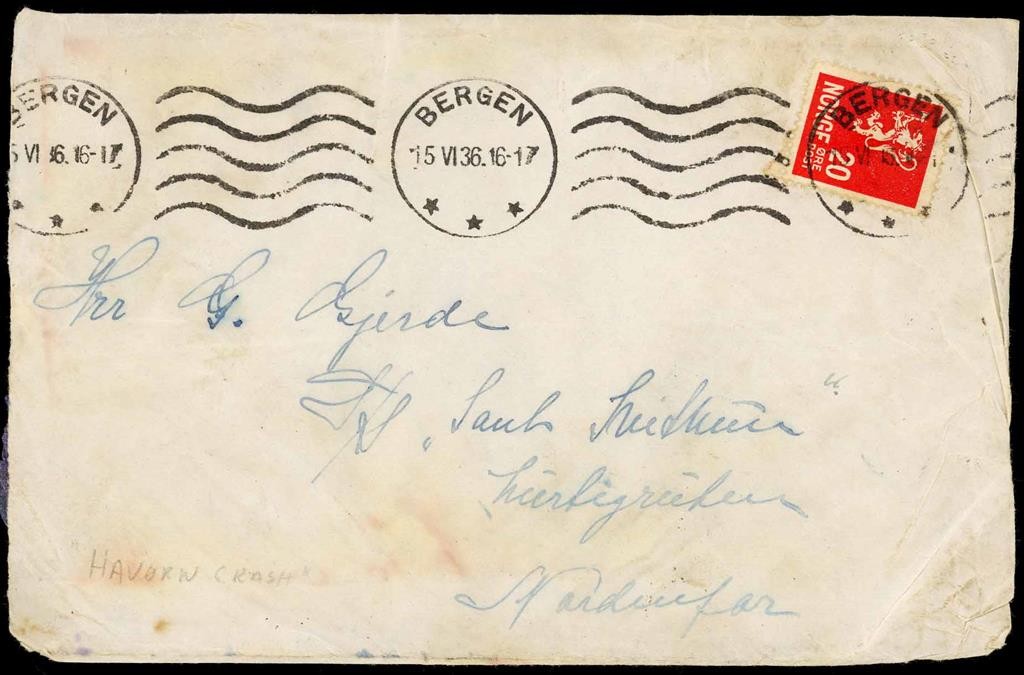 BERGEN
5 VI 36. 16-17
BERGEN
15 VI 36. 16-17
BERGEN
NORGE
POST
20 ØRE
Hrr G. Gjerde
D/S „Sankt Svithun“
hurtigruten
Nordenfor
"HAVØRN CRASH"